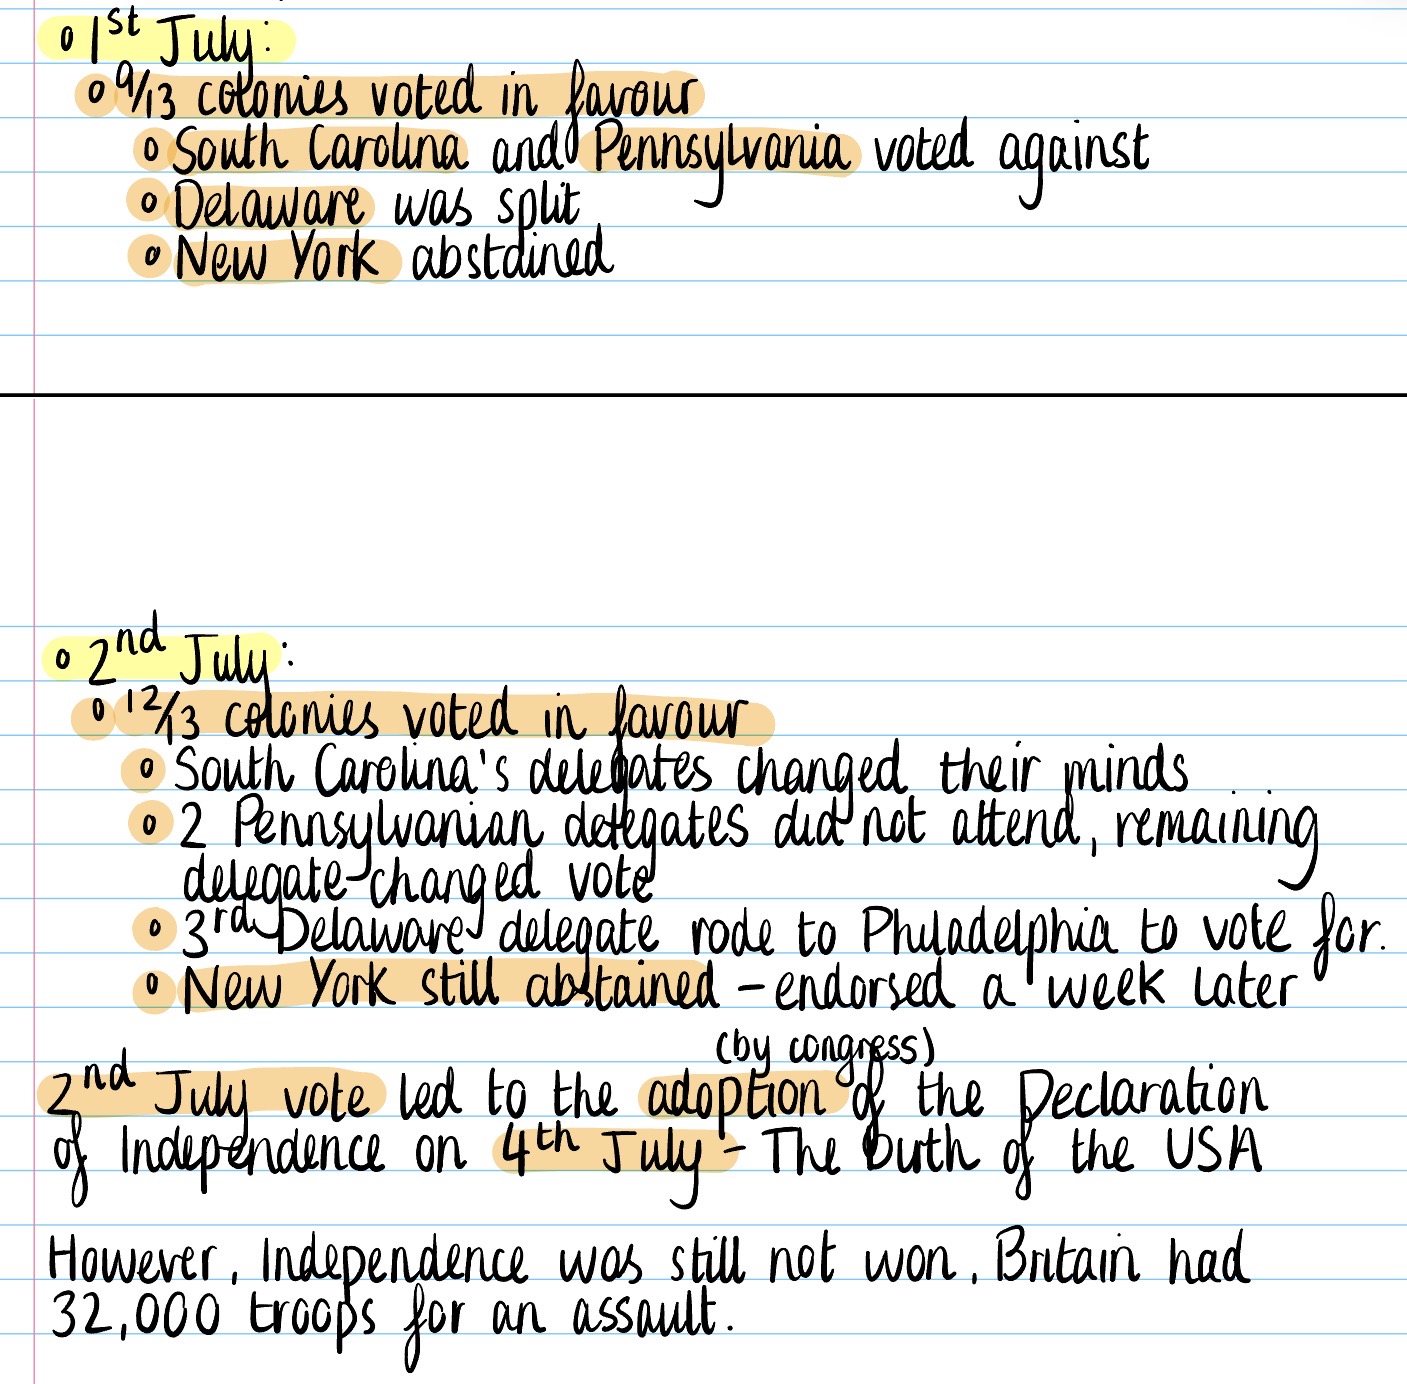 o 1st July:
o 9/13 colonies voted in favour
o South Carolina and Pennsylvania voted against
o Delaware was split
o New York abstained
o 2nd July:
o 12/13 colonies voted in favour
o South Carolina's delegates changed their minds
o 2 Pennsylvanian delegates did not attend, remaining
delegate changed vote
o 3rd Delaware delegate rode to Philadelphia to vote for.
o New York still abstained - endorsed a week later
(by congress)
2nd July vote led to the adoption of the Declaration
of Independence on 4th July - The birth of the USA
However, Independence was still not won. Britain had
32,000 troops for an assault.